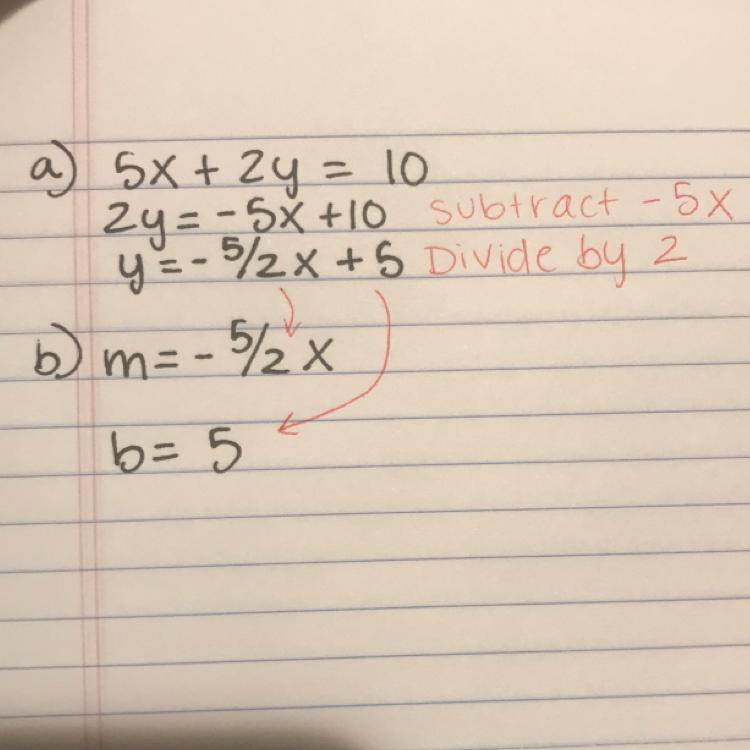 a) 5x + 2y = 10
2y = -5x +10 subtract -5x
y = - 5/2 x + 5 Divide by 2
b) m = - 5/2 x
b = 5